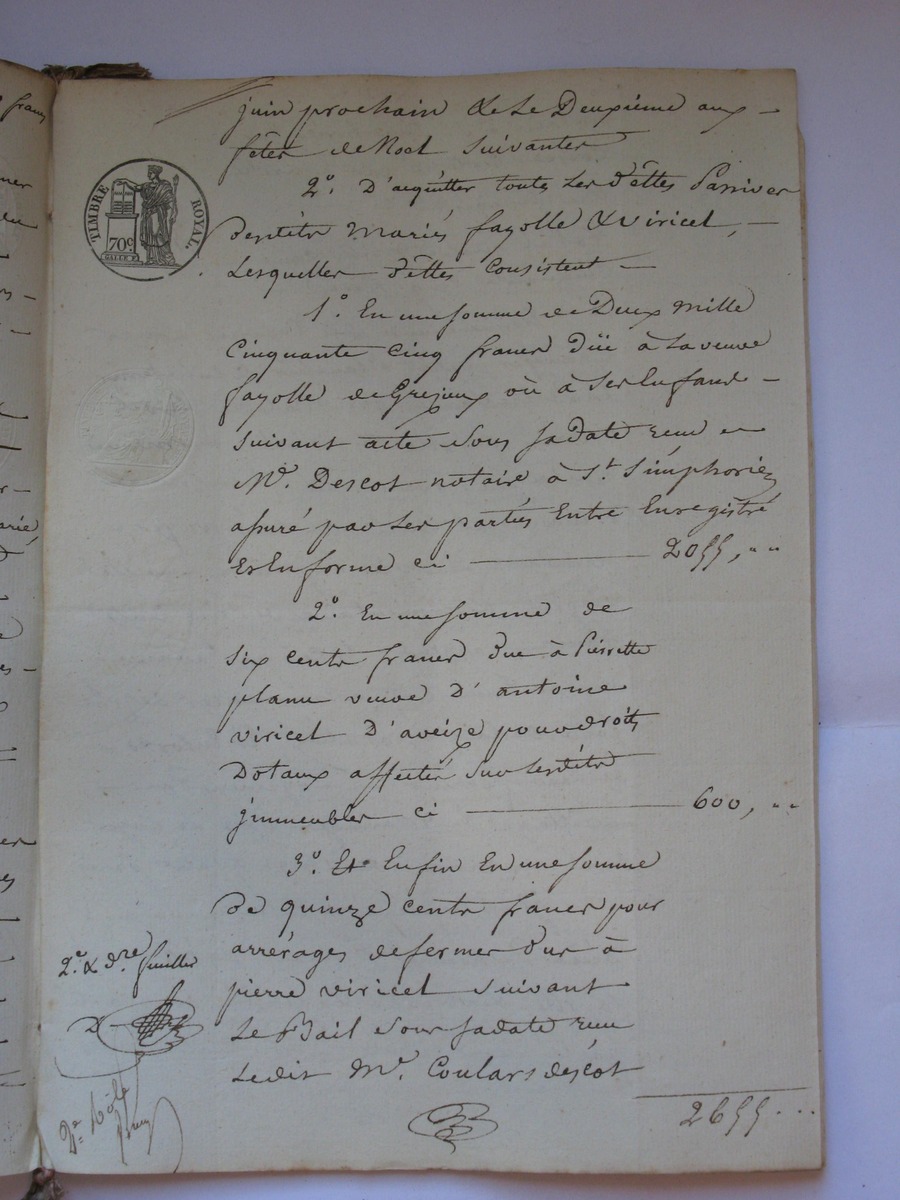 juin prochain & le Deuxieme aux —
fêtes de Noel suivantes
2°. D'acquitter toutes les dêttes Passives
desdits Mariés fayolle & viricel, —
Lesquelles dêttes consistent —
1°. En une somme de Deux mille
Cinquante cinq francs düe à la veuve
fayolle de Grejoux où à ses Enfans —
suivant acte sous sa date reçu
Me. Descot notaire à St. Simphorien
assuré par les parties Entre Enregistré
Es En forme ci — 2055, " "
2°. En une somme de
six cents francs due à Pierrette
planu veuve d'antoine
viricel D'aveize pour droits
Dotaux affectés sur lesdits
jmmeubles ci — 600, " "
3°. Et Enfin En une somme
de quinze cents francs pour
arrérages de fermes dus à
pierre viricel suivant
Le Bail sous sa date reçu
Ledit Me. Coulars descot
2655 " "
TIMBRE ROYAL
70c.
2e. & dre. feuilles
2e. Rôle